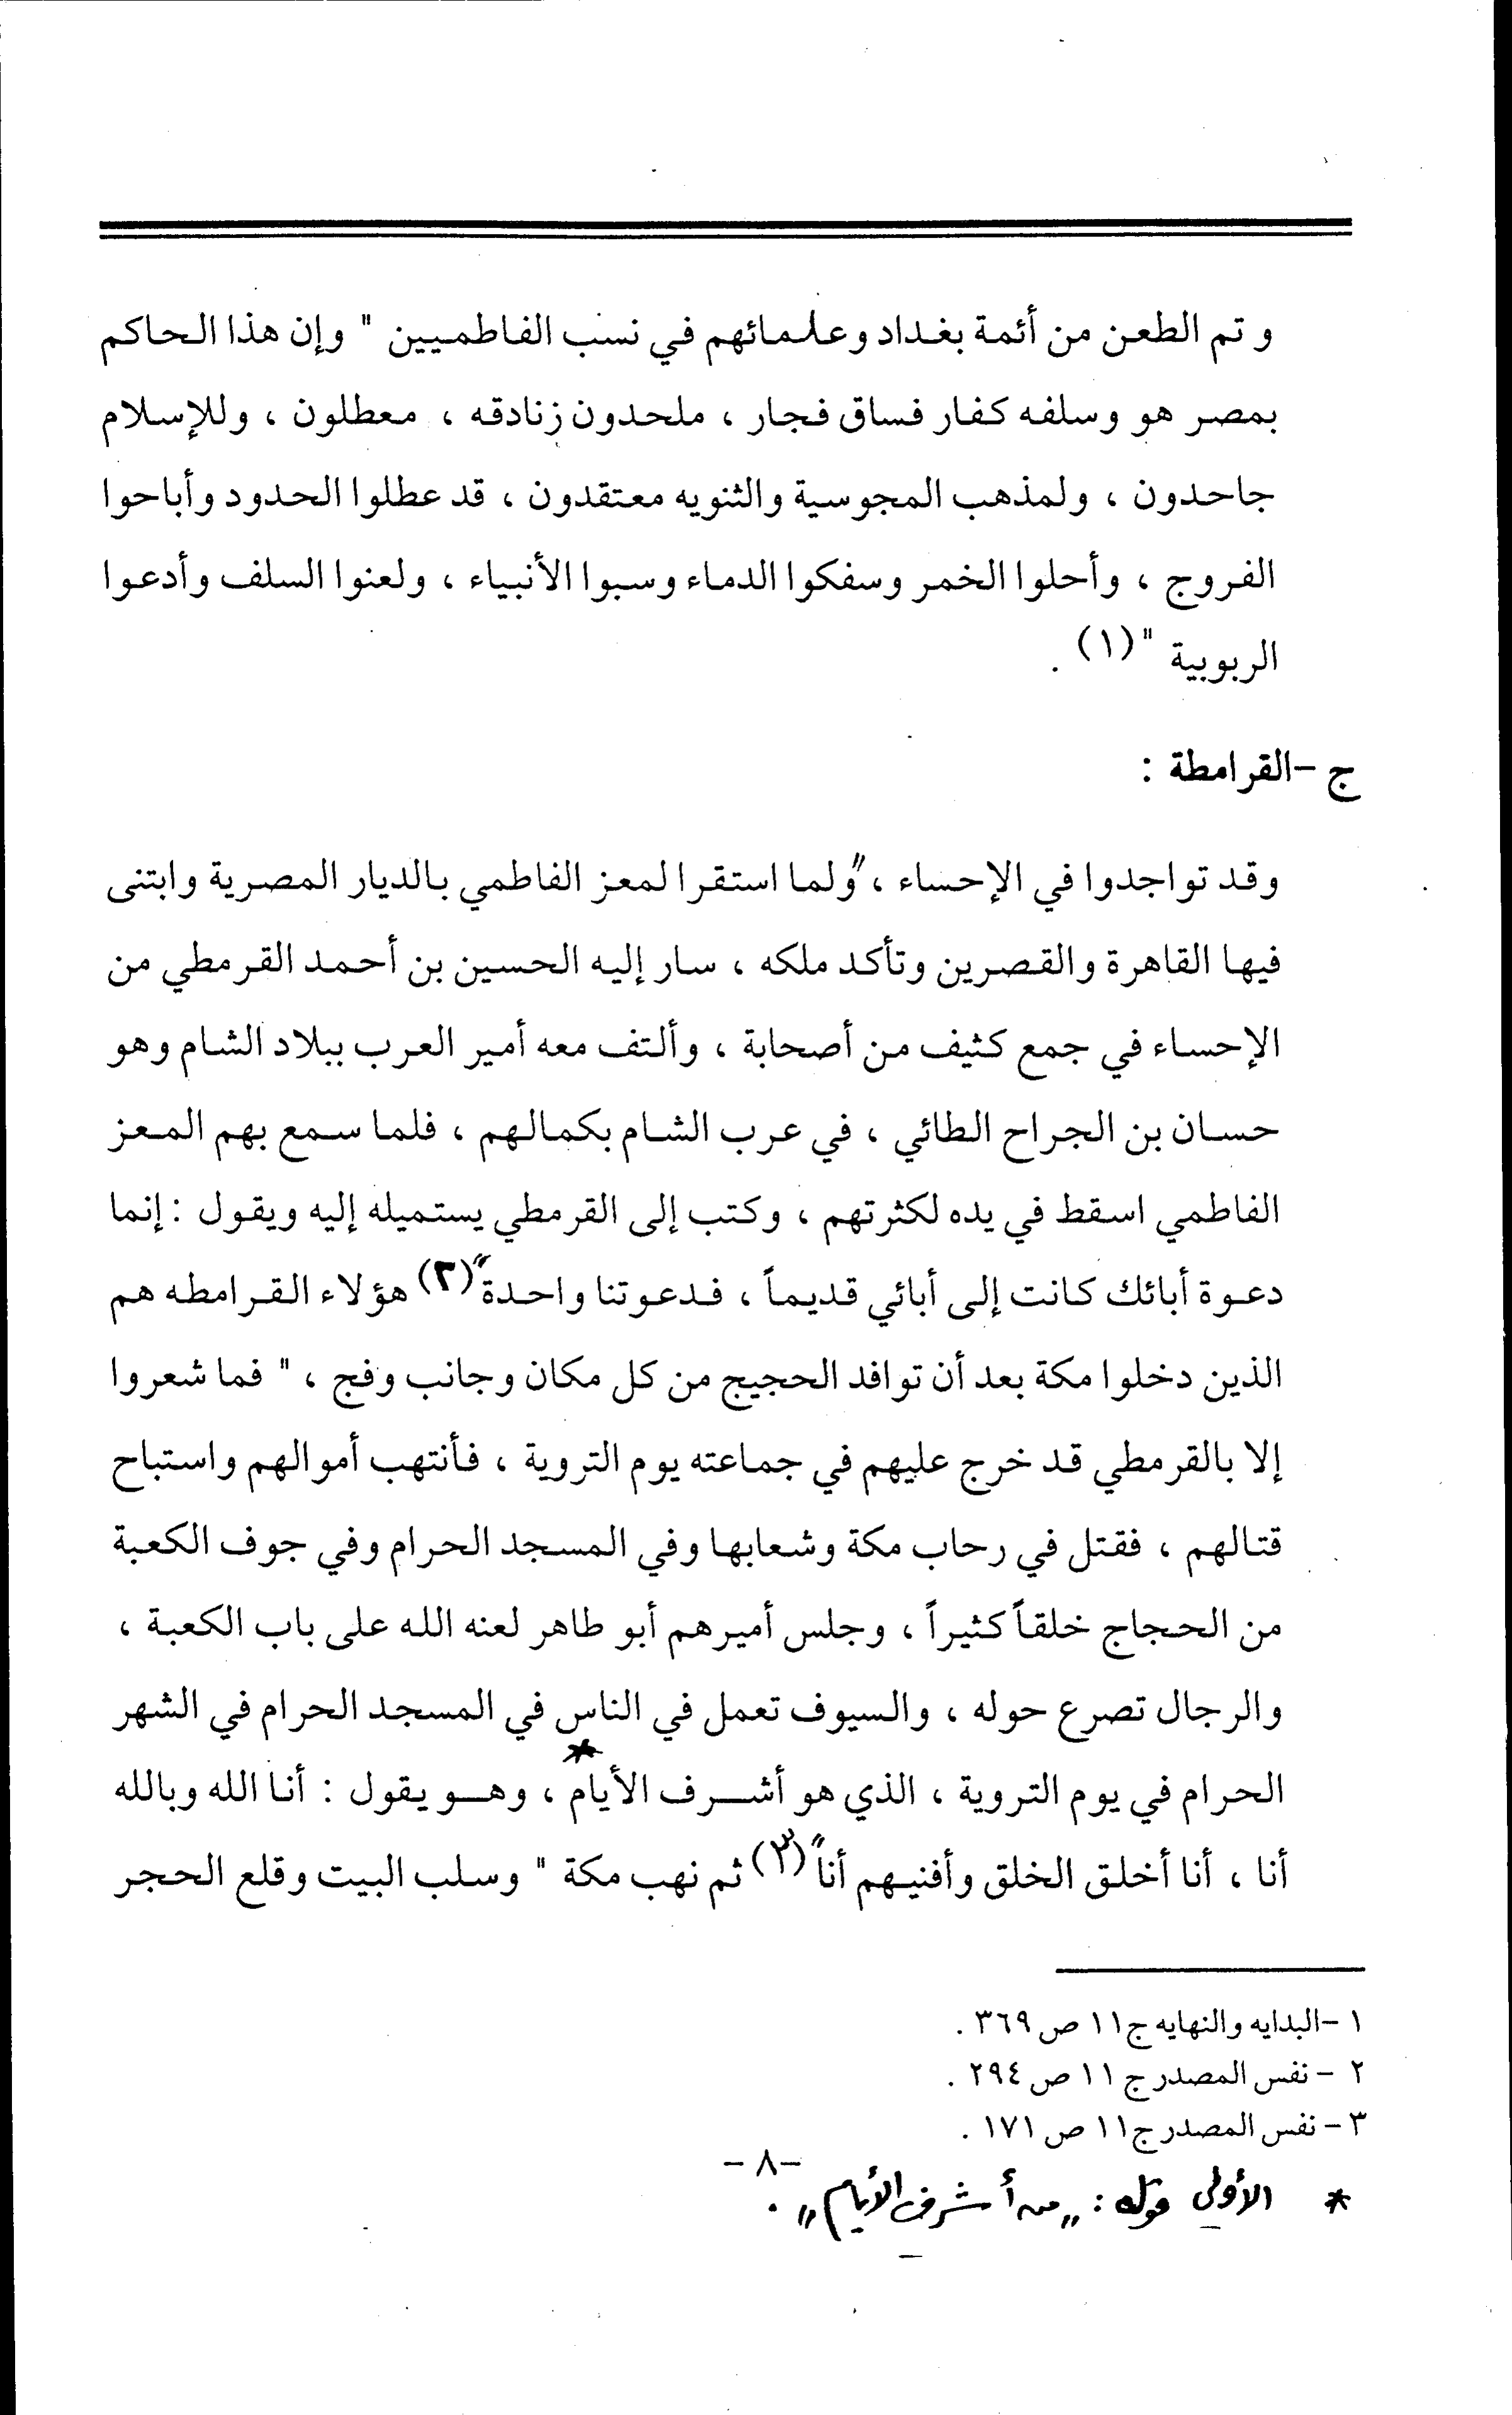 و تم الطعن من أئمة بغداد وعلمائهم في نسب الفاطميين " وإن هذا الحاكم
بمصر هو وسلفه كفار فساق فجار ، ملحدون زنادقه ، معطلون ، وللإسلام
جاحدون ، ولمذهب المجوسية والثنويه معتقدون ، قد عطلوا الحدود وأباحوا
الفروج ، وأحلوا الخمر وسفكوا الدماء وسبوا الأنبياء ، ولعنوا السلف وأدعوا
الربوبية " (١) .
ج -القرامطة :
وقد تواجدوا في الإحساء ، "ولما استقرا لمعز الفاطمي بالديار المصرية وابتنى
فيها القاهرة والقصرين وتأكد ملكه ، سار إليه الحسين بن أحمد القرمطي من
الإحساء في جمع كثيف من أصحابة ، وألتف معه أمير العرب ببلاد الشام وهو
حسان بن الجراح الطائي ، في عرب الشام بكمالهم ، فلما سمع بهم المعز
الفاطمي اسقط في يده لكثرتهم ، وكتب إلى القرمطي يستميله إليه ويقول : إنما
دعوة أبائك كانت إلى أبائي قديماً ، فدعوتنا واحدة" (٢) هؤلاء القرامطه هم
الذين دخلوا مكة بعد أن توافد الحجيج من كل مكان وجانب وفج ، " فما شعروا
إلا بالقرمطي قد خرج عليهم في جماعته يوم التروية ، فأنتهب أموالهم واستباح
قتالهم ، فقتل في رحاب مكة وشعابها وفي المسجد الحرام وفي جوف الكعبة
من الحجاج خلقاً كثيراً ، وجلس أميرهم أبو طاهر لعنه الله على باب الكعبة ،
والرجال تصرع حوله ، والسيوف تعمل في الناس في المسجد الحرام في الشهر
الحرام في يوم التروية ، الذي هو أشرف الأيام * ، وهو يقول : أنا الله وبالله
أنا ، أنا أخلق الخلق وأفنيهم أنا" (٣) ثم نهب مكة " وسلب البيت وقلع الحجر
١ -البدايه والنهايه ج١١ ص٣٦٩ .
٢ - نفس المصدر ج ١١ ص ٢٩٤ .
٣ - نفس المصدر ج١١ ص ١٧١ .
-٨-
* الأولى قوله : "من أشرف الأيام" .